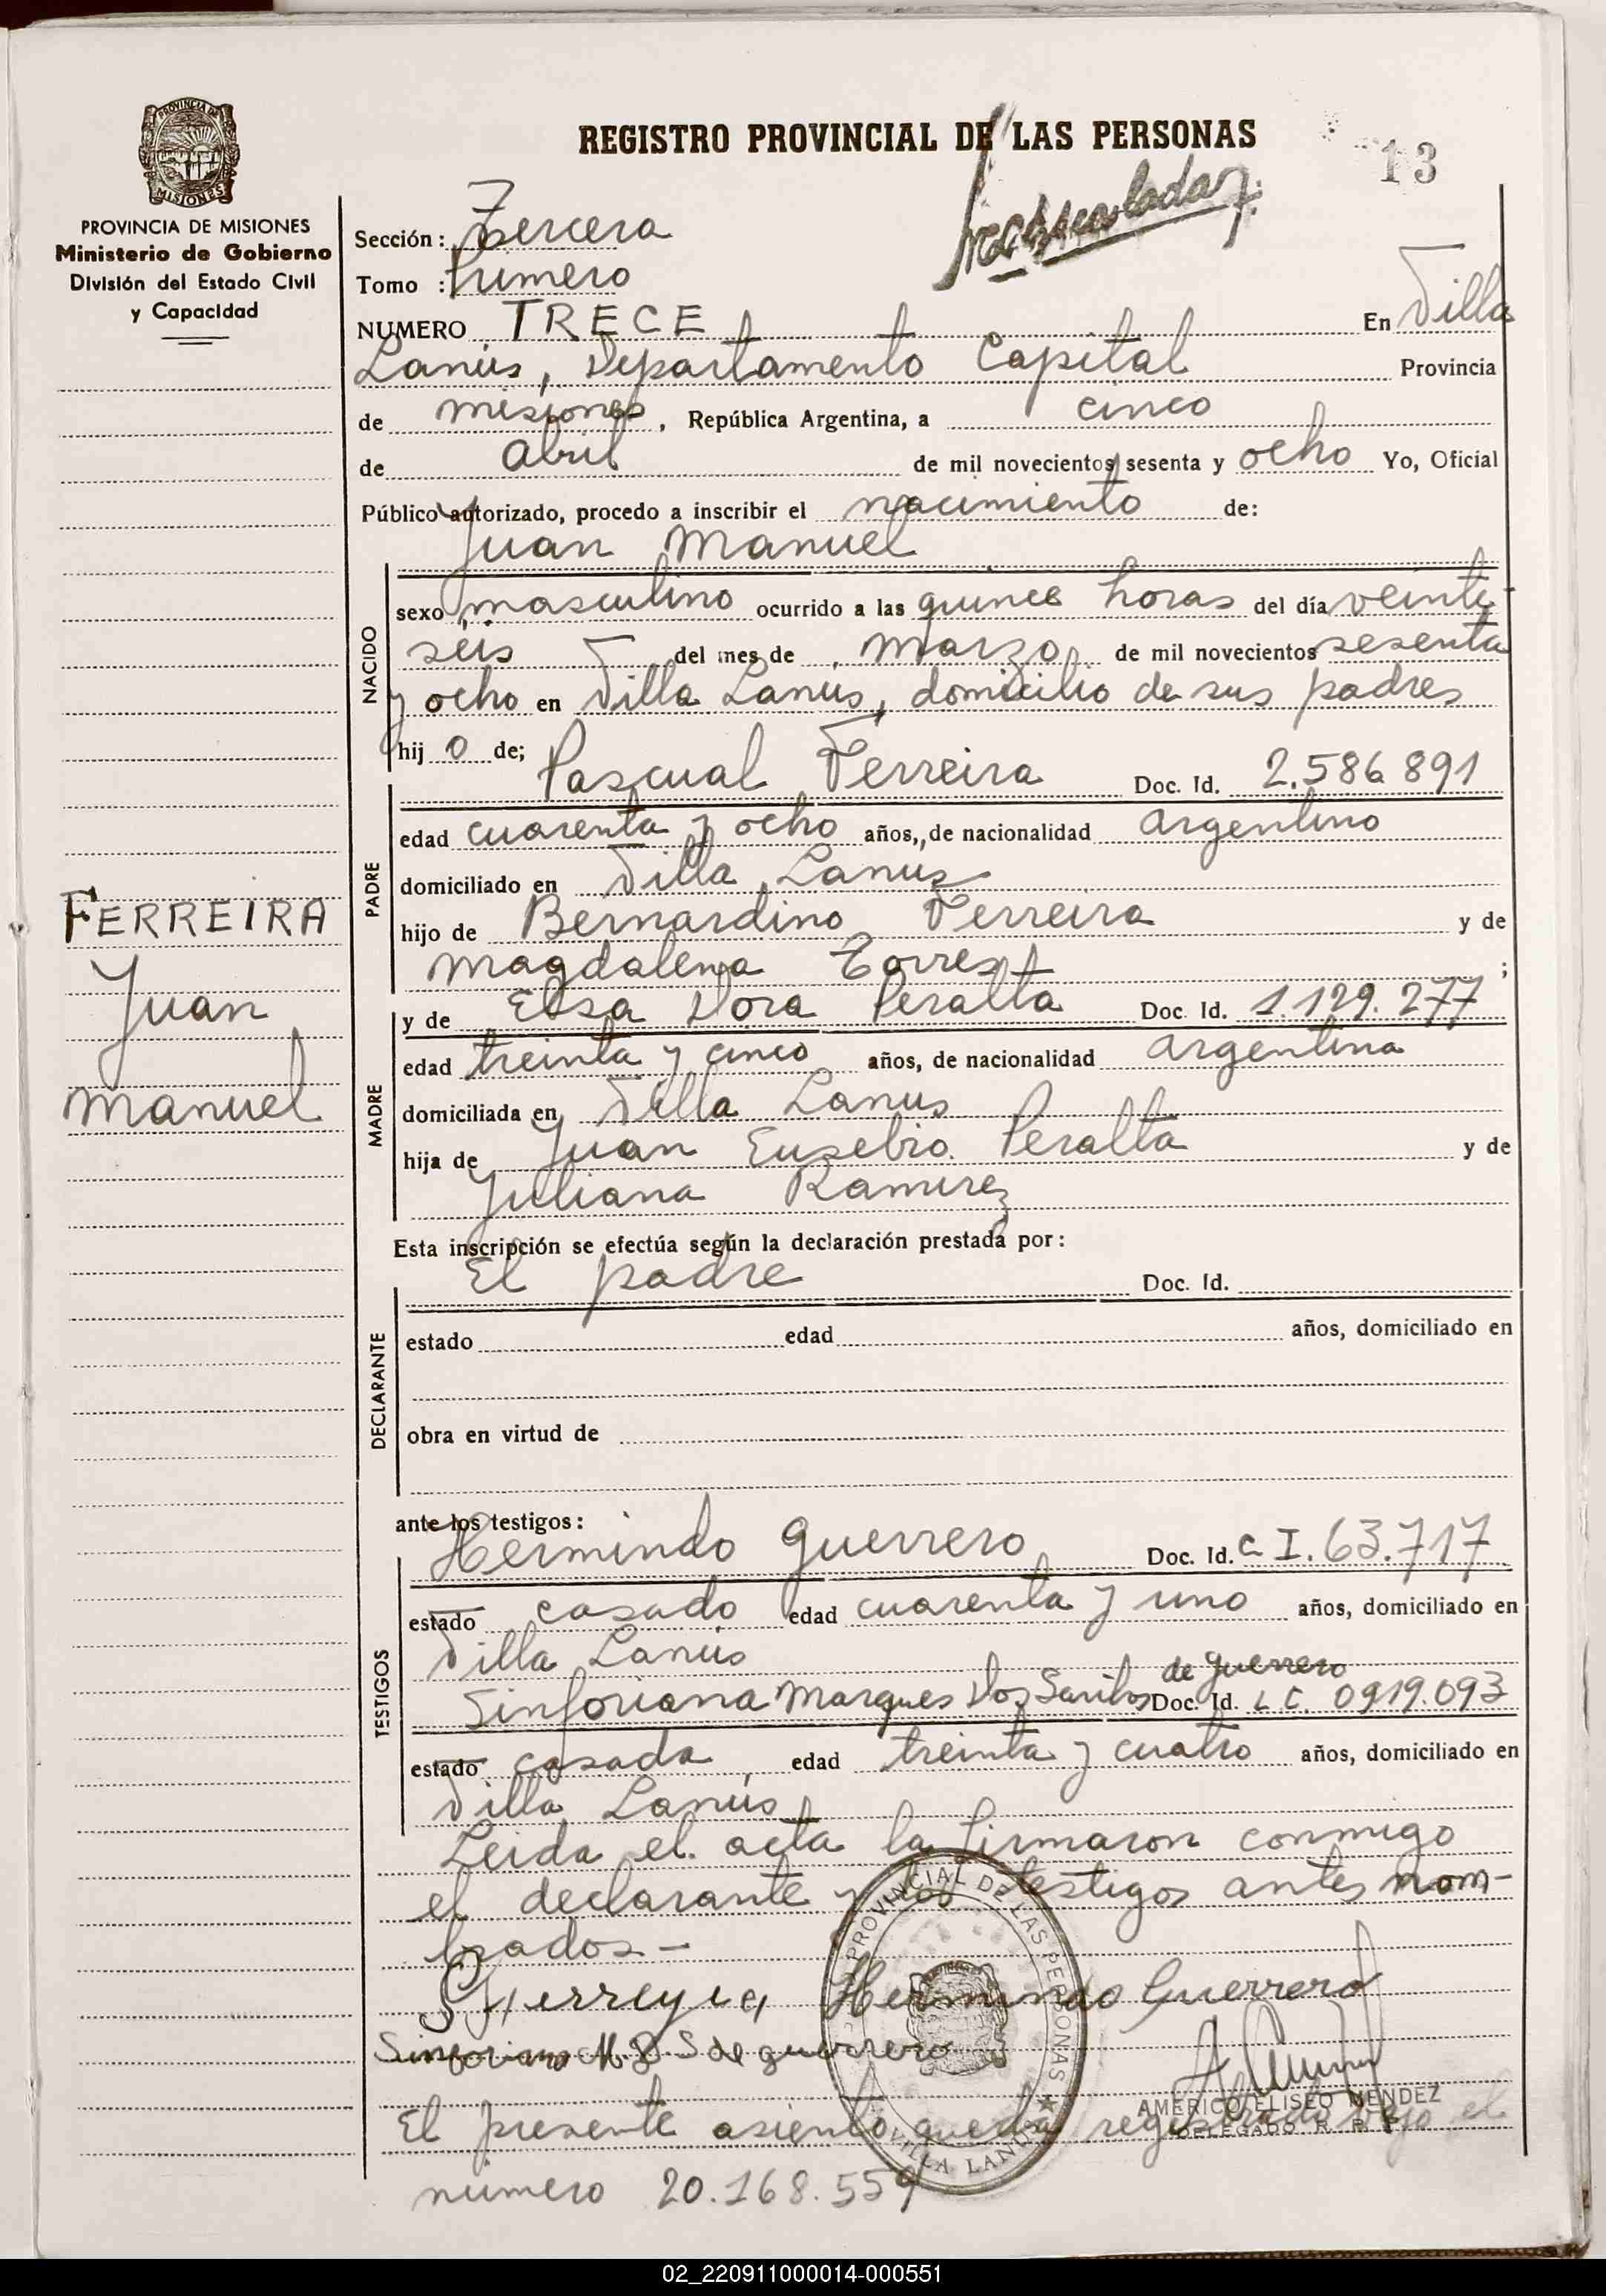 REGISTRO PROVINCIAL DE LAS PERSONAS
13
PROVINCIA DE MISIONES
PROVINCIA DE MISIONES
Ministerio de Gobierno
División del Estado Civil
y Capacidad
Sección: Tercera
Tomo : Primero
NUMERO TRECE En Villa
Lanús, Departamento Capital Provincia
de misiones, República Argentina, a cinco
de Abril de mil novecientos sesenta y ocho Yo, Oficial
Público autorizado, procedo a inscribir el nacimiento de:
Juan Manuel
NACIDO
sexo masculino ocurrido a las quince horas del día veinti-
seis del mes de marzo de mil novecientos sesenta
y ocho en Villa Lanús, domicilio de sus padres
hij o de; Pascual Ferreira Doc. Id. 2.586.891
PADRE
edad cuarenta y ocho años, de nacionalidad argentino
domiciliado en Villa Lanús
hijo de Bernardino Ferreira y de
Magdalena Torres ;
y de Elsa Dora Peralta Doc. Id. 1.129.277
MADRE
edad treinta y cinco años, de nacionalidad argentina
domiciliada en Villa Lanus
hija de Juan Eusebio Peralta y de
Juliana Ramirez
FERREIRA
Juan
Manuel
Esta inscripción se efectúa según la declaración prestada por:
El padre Doc. Id.
DECLARANTE
estado edad años, domiciliado en
obra en virtud de
ante los testigos:
Hermindo Guerrero Doc. Id. C I. 63.717
TESTIGOS
estado casado edad cuarenta y uno años, domiciliado en
Villa Lanús
de Guerrero
Sinforiana Marques Dos Santos Doc. Id. L C. 0919.093
estado casada edad treinta y cuatro años, domiciliado en
Villa Lanús
Leida el acta la firmaron conmigo
el declarante y los testigos antes nom-
brados-
Hermindo Guerrero
Sinforiana M D S de guerrero
PROVINCIAL DE LAS PERSONAS
VILLA LANUS
AMERICO ELISEO MENDEZ
DELEGADO R. P. P.
El presente asiento queda registrado bajo el
número 20.168.559
02_220911000014-000551